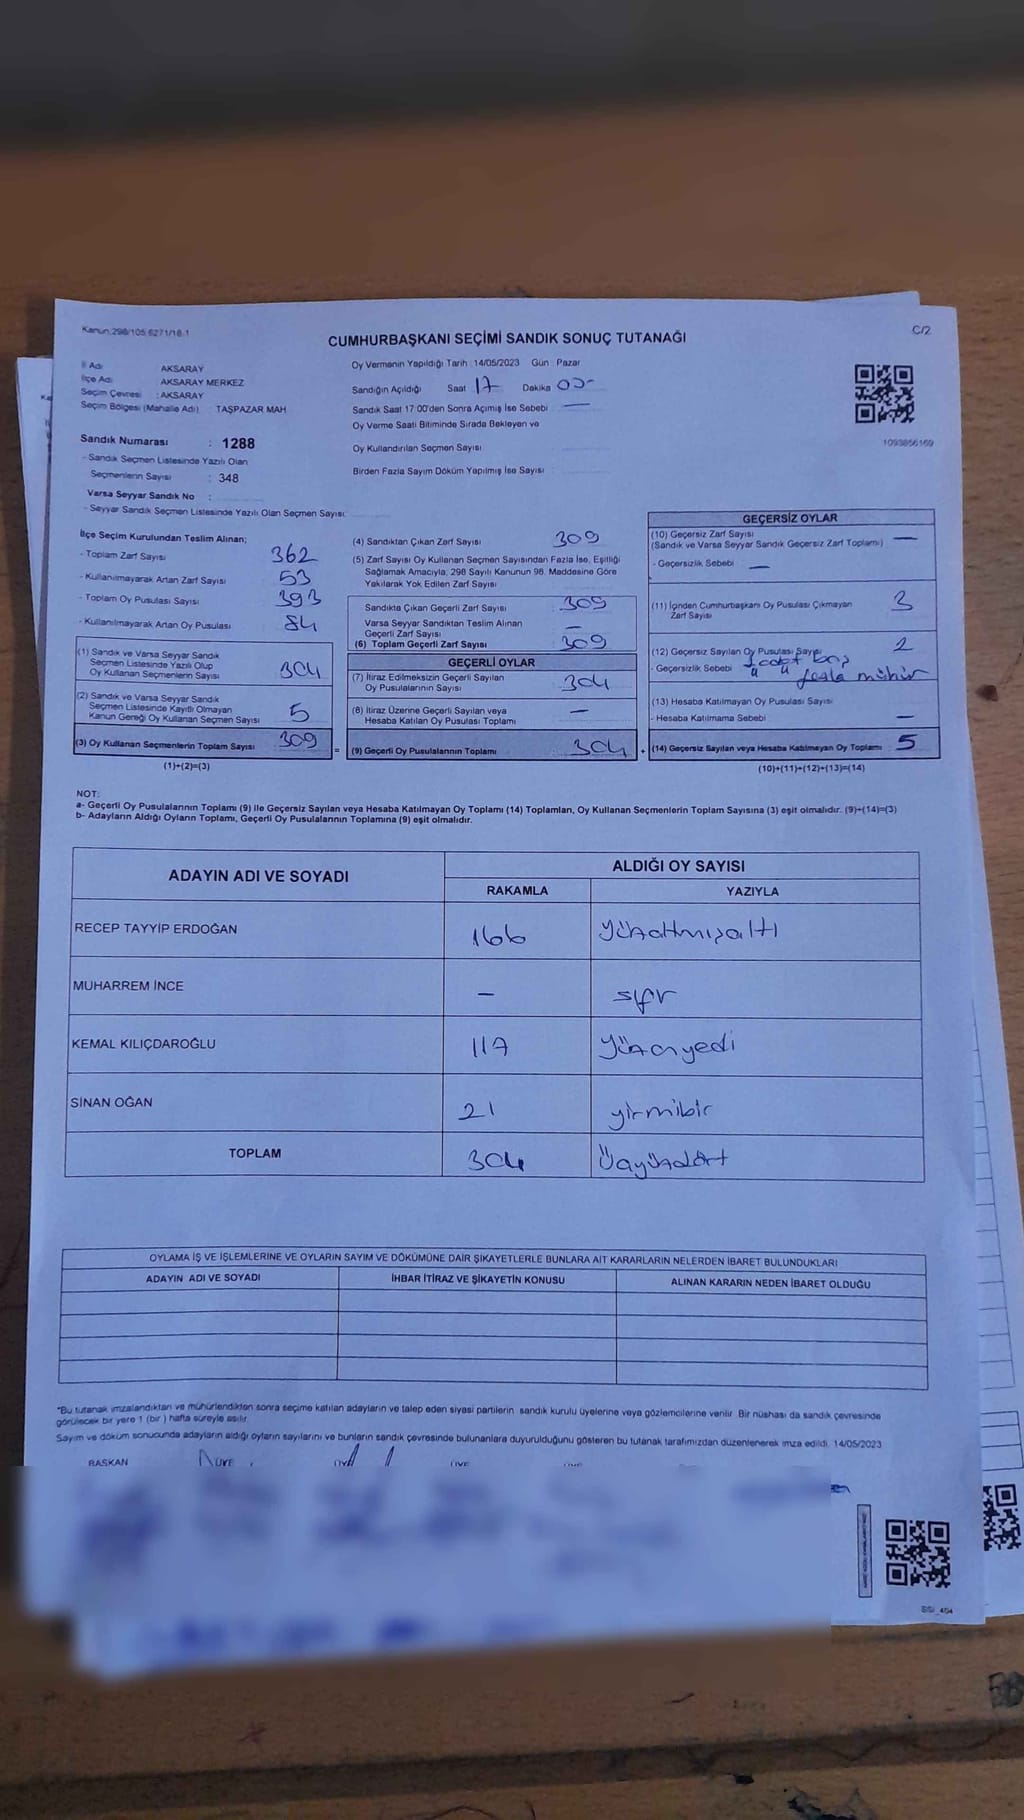 Kanun:298/105 6271/18.1
C/2
CUMHURBAŞKANI SEÇİMİ SANDIK SONUÇ TUTANAĞI
İl Adı AKSARAY
İlçe Adı AKSARAY MERKEZ
Seçim Çevresi : AKSARAY
Seçim Bölgesi (Mahalle Adı) : TAŞPAZAR MAH
Sandık Numarası : 1288
- Sandık Seçmen Listesinde Yazılı Olan
Seçmenlerin Sayısı : 348
Varsa Seyyar Sandık No :
- Seyyar Sandık Seçmen Listesinde Yazılı Olan Seçmen Sayısı:
Oy Vermenin Yapıldığı Tarih : 14/05/2023 Gün : Pazar
Sandığın Açıldığı Saat 17 Dakika 05-
Sandık Saat 17:00'den Sonra Açımış İse Sebebi —
Oy Verme Saati Bitiminde Sırada Bekleyen ve
Oy Kullandırılan Seçmen Sayısı
Birden Fazla Sayım Döküm Yapılmış İse Sayısı
1093856169
İlçe Seçim Kurulundan Teslim Alınan;
- Toplam Zarf Sayısı 362
- Kullanılmayarak Artan Zarf Sayısı 53
- Toplam Oy Pusulası Sayısı 393
- Kullanılmayarak Artan Oy Pusulası 84
(1) Sandık ve Varsa Seyyar Sandık
Seçmen Listesinde Yazılı Olup
Oy Kullanan Seçmenlerin Sayısı 304
(2) Sandık ve Varsa Seyyar Sandık
Seçmen Listesinde Kayıtlı Olmayan
Kanun Gereği Oy Kullanan Seçmen Sayısı 5
(3) Oy Kullanan Seçmenlerin Toplam Sayısı 309
(1)+(2)=(3)
(4) Sandıktan Çıkan Zarf Sayısı 309
(5) Zarf Sayısı Oy Kullanan Seçmen Sayısından Fazla İse, Eşitliği
Sağlamak Amacıyla, 298 Sayılı Kanunun 98. Maddesine Göre
Yakılarak Yok Edilen Zarf Sayısı
Sandıkta Çıkan Geçerli Zarf Sayısı 309
Varsa Seyyar Sandıktan Teslim Alınan
Geçerli Zarf Sayısı —
(6) Toplam Geçerli Zarf Sayısı 309
GEÇERLİ OYLAR
(7) İtiraz Edilmeksizin Geçerli Sayılan
Oy Pusulalarının Sayısı 304
(8) İtiraz Üzerine Geçerli Sayılan veya
Hesaba Katılan Oy Pusulası Toplamı —
= (9) Geçerli Oy Pusulalarının Toplamı 304 +
GEÇERSİZ OYLAR
(10) Geçersiz Zarf Sayısı —
(Sandık ve Varsa Seyyar Sandık Geçersiz Zarf Toplamı)
- Geçersizlik Sebebi —
(11) İçinden Cumhurbaşkanı Oy Pusulası Çıkmayan 3
Zarf Sayısı
(12) Geçersiz Sayılan Oy Pusulası Sayısı 2
- Geçersizlik Sebebi 1 adet boş
fazla mühür
(13) Hesaba Katılmayan Oy Pusulası Sayısı
- Hesaba Katılmama Sebebi —
(14) Geçersiz Sayılan veya Hesaba Katılmayan Oy Toplamı 5
(10)+(11)+(12)+(13)=(14)
NOT:
a- Geçerli Oy Pusulalarının Toplamı (9) ile Geçersiz Sayılan veya Hesaba Katılmayan Oy Toplamı (14) Toplamları, Oy Kullanan Seçmenlerin Toplam Sayısına (3) eşit olmalıdır. (9)+(14)=(3)
b- Adayların Aldığı Oyların Toplamı, Geçerli Oy Pusulalarının Toplamına (9) eşit olmalıdır.
ADAYIN ADI VE SOYADI
ALDIĞI OY SAYISI
RAKAMLA YAZIYLA
RECEP TAYYİP ERDOĞAN 166 Yüzaltmışaltı
MUHARREM İNCE — sıfır
KEMAL KILIÇDAROĞLU 117 Yüzonyedi
SİNAN OĞAN 21 yirmibir
TOPLAM 304 Üçyüzdört
OYLAMA İŞ VE İŞLEMLERİNE VE OYLARIN SAYIM VE DÖKÜMÜNE DAİR ŞİKAYETLERLE BUNLARA AİT KARARLARIN NELERDEN İBARET BULUNDUKLARI
ADAYIN ADI VE SOYADI İHBAR İTİRAZ VE ŞİKAYETİN KONUSU ALINAN KARARIN NEDEN İBARET OLDUĞU
*Bu tutanak imzalandıktan ve mühürlendikten sonra seçime katılan adayların ve talep eden siyasi partilerin sandık kurulu üyelerine veya gözlemcilerine verilir. Bir nüshası da sandık çevresinde
görülecek bir yere 1 (bir ) hafta süreyle asılır.
Sayım ve döküm sonucunda adayların aldığı oyların sayılarını ve bunların sandık çevresinde bulunanlara duyurulduğunu gösteren bu tutanak tarafımızdan düzenlenerek imza edildi. 14/05/2023
BAŞKAN ÜYE